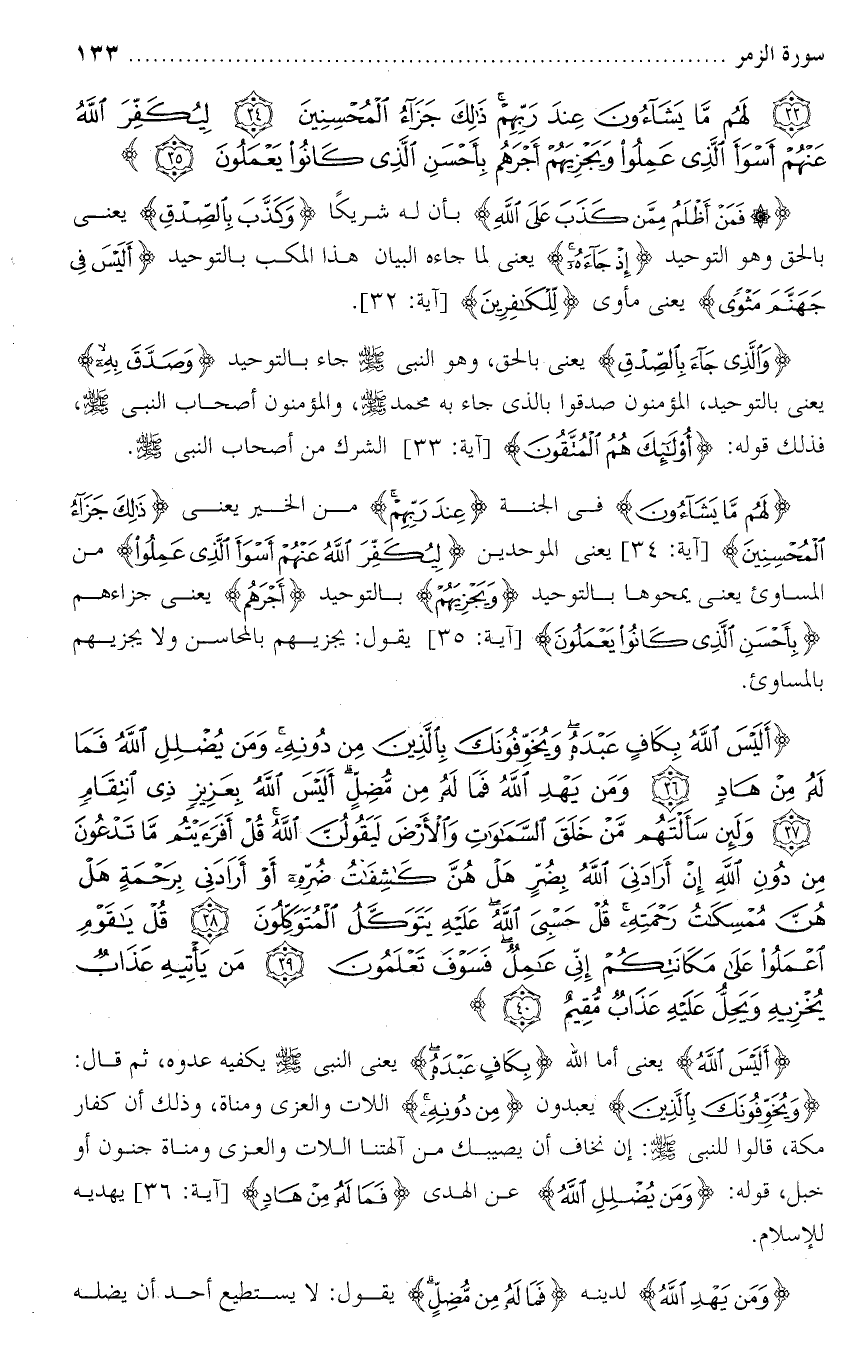 سورة الزمر ........................................................................ ١٣٣
﴿٣٣﴾ لَهُم مَّا يَشَآءُونَ عِندَ رَبِّهِمْ ۚ ذَٰلِكَ جَزَآءُ ٱلْمُحْسِنِينَ ﴿٣٤﴾ لِيُكَفِّرَ ٱللَّهُ
عَنْهُمْ أَسْوَأَ ٱلَّذِى عَمِلُوا۟ وَيَجْزِيَهُمْ أَجْرَهُم بِأَحْسَنِ ٱلَّذِى كَانُوا۟ يَعْمَلُونَ ﴿٣٥﴾ ﴾
﴿۞ فَمَنْ أَظْلَمُ مِمَّن كَذَبَ عَلَى ٱللَّهِ﴾ بأن له شريكًا ﴿وَكَذَّبَ بِٱلصِّدْقِ﴾ يعنى
بالحق وهو التوحيد ﴿إِذْ جَآءَهُۥٓ ۚ﴾ يعنى لما جاءه البيان هذا المكب بالتوحيد ﴿أَلَيْسَ فِى
جَهَنَّمَ مَثْوًى﴾ يعنى مأوى ﴿لِّلْكَٰفِرِينَ﴾ [آية: ٣٢].
﴿وَٱلَّذِى جَآءَ بِٱلصِّدْقِ﴾ يعنى بالحق، وهو النبى ﷺ جاء بالتوحيد ﴿وَصَدَّقَ بِهِۦٓ ۙ﴾
يعنى بالتوحيد، المؤمنون صدقوا بالذى جاء به محمد ﷺ، والمؤمنون أصحاب النبى ﷺ،
فذلك قوله: ﴿أُو۟لَٰٓئِكَ هُمُ ٱلْمُتَّقُونَ﴾ [آية: ٣٣] الشرك من أصحاب النبى ﷺ.
﴿لَهُم مَّا يَشَآءُونَ﴾ فى الجنة ﴿عِندَ رَبِّهِمْ ۚ﴾ من الخير يعنى ﴿ذَٰلِكَ جَزَآءُ
ٱلْمُحْسِنِينَ﴾ [آية: ٣٤] يعنى الموحدين ﴿لِيُكَفِّرَ ٱللَّهُ عَنْهُمْ أَسْوَأَ ٱلَّذِى عَمِلُوا۟﴾ من
المساوئ يعنى يمحوها بالتوحيد ﴿وَيَجْزِيَهُمْ﴾ بالتوحيد ﴿أَجْرَهُم﴾ يعنى جزاءهم
﴿بِأَحْسَنِ ٱلَّذِى كَانُوا۟ يَعْمَلُونَ﴾ [آية: ٣٥] يقول: يجزيهم بالمحاسن ولا يجزيهم
بالمساوئ.
﴿أَلَيْسَ ٱللَّهُ بِكَافٍ عَبْدَهُۥ ۖ وَيُخَوِّفُونَكَ بِٱلَّذِينَ مِن دُونِهِۦ ۚ وَمَن يُضْلِلِ ٱللَّهُ فَمَا
لَهُۥ مِنْ هَادٍ ﴿٣٦﴾ وَمَن يَهْدِ ٱللَّهُ فَمَا لَهُۥ مِن مُّضِلٍّ ۗ أَلَيْسَ ٱللَّهُ بِعَزِيزٍ ذِى ٱنتِقَامٍ
﴿٣٧﴾ وَلَئِن سَأَلْتَهُم مَّنْ خَلَقَ ٱلسَّمَٰوَٰتِ وَٱلْأَرْضَ لَيَقُولُنَّ ٱللَّهُ ۚ قُلْ أَفَرَءَيْتُم مَّا تَدْعُونَ
مِن دُونِ ٱللَّهِ إِنْ أَرَادَنِىَ ٱللَّهُ بِضُرٍّ هَلْ هُنَّ كَٰشِفَٰتُ ضُرِّهِۦٓ أَوْ أَرَادَنِى بِرَحْمَةٍ هَلْ
هُنَّ مُمْسِكَٰتُ رَحْمَتِهِۦ ۚ قُلْ حَسْبِىَ ٱللَّهُ ۖ عَلَيْهِ يَتَوَكَّلُ ٱلْمُتَوَكِّلُونَ ﴿٣٨﴾ قُلْ يَٰقَوْمِ
ٱعْمَلُوا۟ عَلَىٰ مَكَانَتِكُمْ إِنِّى عَٰمِلٌ ۖ فَسَوْفَ تَعْلَمُونَ ﴿٣٩﴾ مَن يَأْتِيهِ عَذَابٌ
يُخْزِيهِ وَيَحِلُّ عَلَيْهِ عَذَابٌ مُّقِيمٌ ﴿٤٠﴾ ﴾
﴿أَلَيْسَ ٱللَّهُ﴾ يعنى أما الله ﴿بِكَافٍ عَبْدَهُۥ ۖ﴾ يعنى النبى ﷺ يكفيه عدوه، ثم قال:
﴿وَيُخَوِّفُونَكَ بِٱلَّذِينَ﴾ يعبدون ﴿مِن دُونِهِۦ ۚ﴾ اللات والعزى ومناة، وذلك أن كفار
مكة، قالوا للنبى ﷺ: إن نخاف أن يصيبك من آلهتنا اللات والعزى ومناة جنون أو
خبل، قوله: ﴿وَمَن يُضْلِلِ ٱللَّهُ﴾ عن الهدى ﴿فَمَا لَهُۥ مِنْ هَادٍ﴾ [آية: ٣٦] يهديه
للإسلام.
﴿وَمَن يَهْدِ ٱللَّهُ﴾ لدينه ﴿فَمَا لَهُۥ مِن مُّضِلٍّ ۗ﴾ يقول: لا يستطيع أحد أن يضله